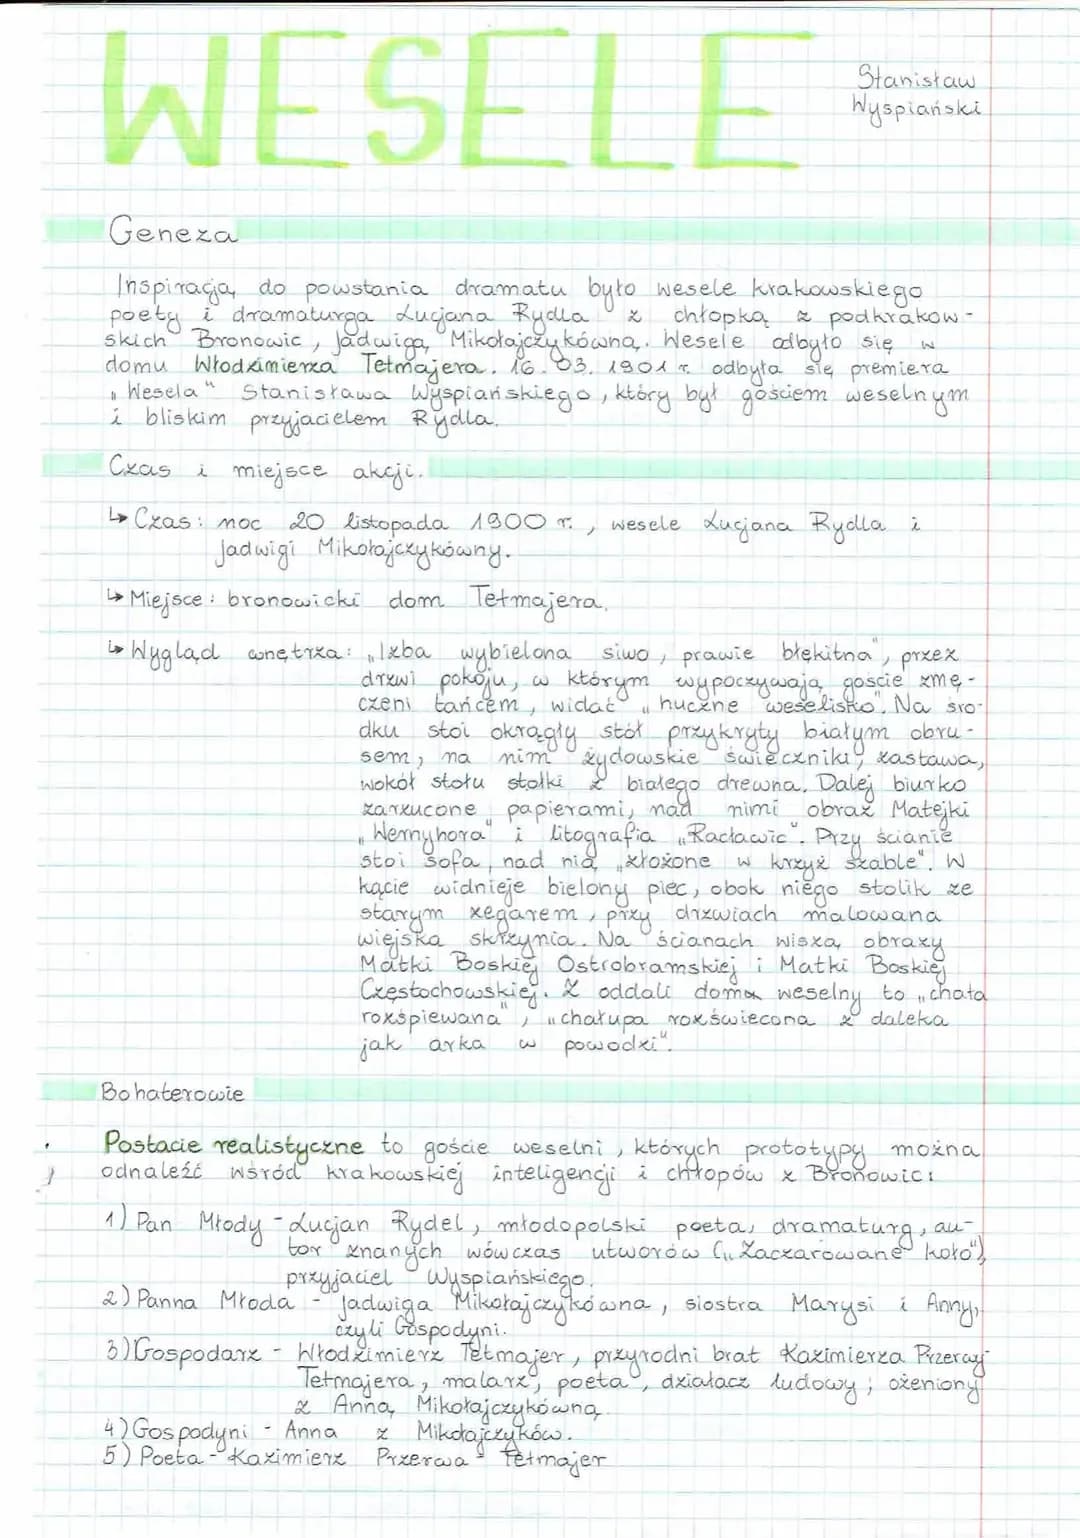 WESELE
Stanisław
Wyspiański
Geneza
Inspiracją do powstania dramatu było wesele krakowskiego
poety i dramaturga Lucjana Rydla z chłopką z podkrakow-
skich Bronowic, Jadwigą Mikołajczykówną. Wesele odbyło się w
domu Włodzimierza Tetmajera. 16.03.1901 r. odbyła się premiera
„Wesela" Stanisława Wyspiańskiego, który był gościem weselnym
i bliskim przyjacielem Rydla.
Czas i miejsce akcji.
↳ Czas: noc 20 listopada 1900 r., wesele Lucjana Rydla i
Jadwigi Mikołajczykówny.
↳ Miejsce: bronowicki dom Tetmajera.
↳ Wygląd wnętrza: „Izba wybielona siwo, prawie błękitna", przez
drzwi pokoju, w którym wypoczywają goście zmę-
czeni tańcem, widać „huczne weselisko". Na śro-
dku stoi okrągły stół przykryty białym obru-
sem, na nim żydowskie świeczniki, zastawa,
wokół stołu stołki z białego drewna. Dalej biurko
zarzucone papierami, nad nimi obraz Matejki
„Wernyhora" i litografia „Racławic". Przy ścianie
stoi sofa, nad nią „złożone w krzyż szable". W
kącie widnieje bielony piec, obok niego stolik ze
starym zegarem, przy drzwiach malowana
wiejska skrzynia. Na ścianach wiszą obrazy
Matki Boskiej Ostrobramskiej i Matki Boskiej
Częstochowskiej. Z oddali dom weselny to „chata
rozśpiewana", „chałupa rozświecona z daleka
jak arka w powodzi".
Bohaterowie
Postacie realistyczne to goście weselni, których prototypy można
odnaleźć wśród krakowskiej inteligencji i chłopów z Bronowic:
1) Pan Młody - Lucjan Rydel, młodopolski poeta, dramaturg, au-
tor znanych wówczas utworów („Zaczarowane koło"),
przyjaciel Wyspiańskiego.
2) Panna Młoda - Jadwiga Mikołajczykówna, siostra Marysi i Anny,
czyli Gospodyni.
3) Gospodarz - Włodzimierz Tetmajer, przyrodni brat Kazimierza Przerwy
Tetmajera, malarz, poeta, działacz ludowy; ożeniony
z Anną Mikołajczykówną.
4) Gospodyni - Anna z Mikołajczyków.
5) Poeta - Kazimierz Przerwa - Tetmajer